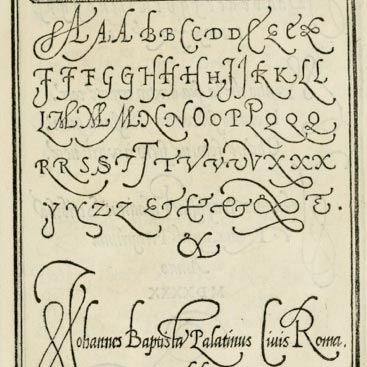 A A A B B C D D E E E
F F F G G H H H H J J K K L L
L M M M N N O O P P Q Q Q
R R S S T T T V V V V X X X
Y Y Z Z & & & & &.
&
Johannes Baptista Palatinus Civis Roma.